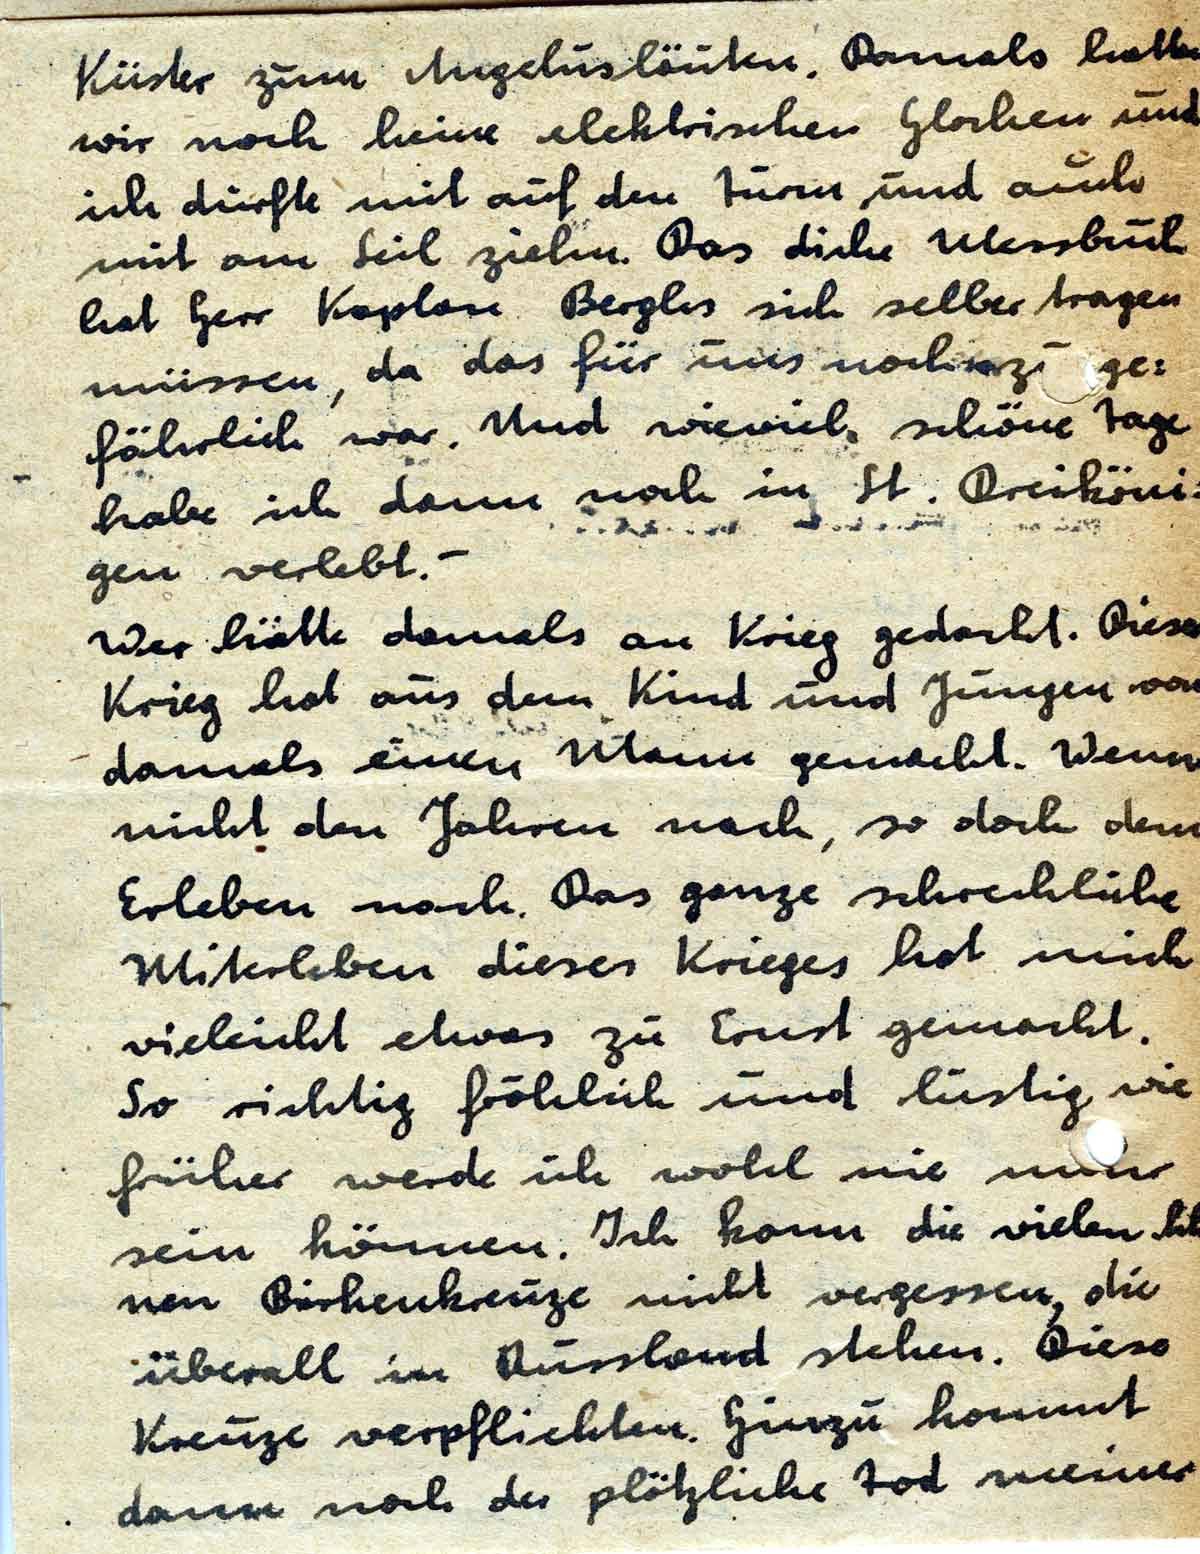 Küster zum Angelusläuten. Damals hatten
wir noch keine elektrischen Glocken und
ich durfte mit auf den Turm und auch
mit am Seil ziehn. Das dicke Messbuch
hat Herr Kaplan Berghs sich selber tragen
müssen, da das für uns noch zu ge=
fährlich war. Und wieviel schöne Tage
habe ich dann noch in St. Dreiköni=
gen verlebt.–
Wer hätte damals an Krieg gedacht. Dieser
Krieg hat aus dem Kind und Jungen von
damals einen Mann gemacht. Wenn
nicht den Jahren nach, so doch dem
Erleben nach. Das ganze schreckliche
Miterleben dieses Krieges hat mich
vieleicht etwas zu Ernst gemacht.
So richtig fröhlich und lustig wie
früher werde ich wohl nie mehr
sein können. Ich kann die vielen
nen Birkenkreuze nicht vergessen, die
überall in Russland stehen. Diese
Kreuze verpflichten. Hinzu kommt
dann noch der plötzliche Tod meiner